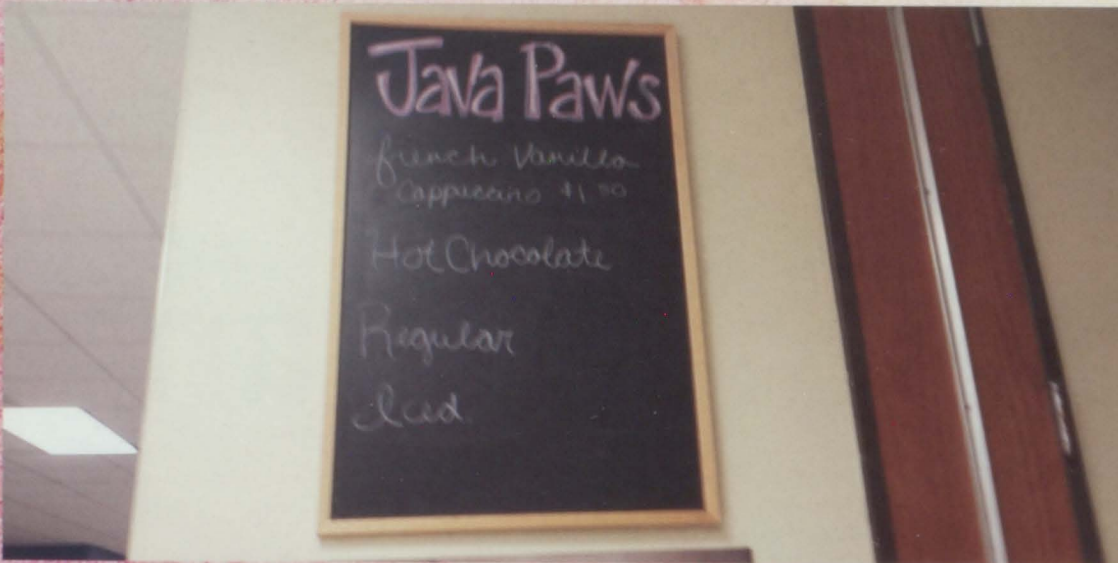 Java Paws
french Vanilla
Cappuccino $1.50
Hot Chocolate
Regular
Iced